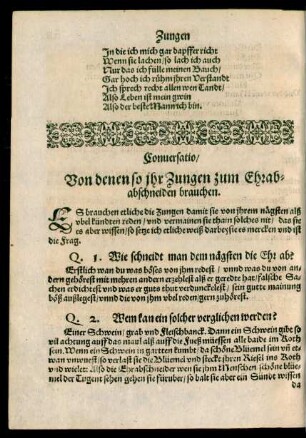 Zungen
In die ich mich gar dapffer richt
Wenn sie lachen/ so lach ich auch
Nur das ich fülle meinen Bauch/
Gar hoch ich rühm jhren Verstandt
Ich sprech recht allen wen Tandt/
Also Leben ist mein gwin
Also der beste Mann ich bin.
Conuersatio/
Von denen so jhr Zungen zum Ehrab-
abschneiden brauchen.
ES brauchen etliche die Zungen damit sie von jhrem nägsten alß
vbel kündten reden/ vnd vermainen sie thaen solches nit/ das sie
es aber wissen/ so setze ich etliche weiß darbey sie es mercken vnd ist
die Frag.
Q. 1. Wie schneidt man dem nägsten die Ehr ab?
Erstlich wan du was böses von jhm redest/ vnnd was du von an-
dern gehörest mit mehrern andern erzehlest alß er geredt hat/ falsche Sa-
chen erdichtest/ vnd was er guts thut verdunckelest/ sein gutte mainung
böß außlegest/ vnnd die von jhm vbel reden gern zuhörest.
Q. 2. Wem kan ein solcher verglichen werden?
Einer Schwein/ grab vnd Fleischbanck. Dann ein Schwein gibt so
vil achtung auff das maul alß auff die Fueß müessen alle baide im Roth
sein. Wenn ein Schwein in garten kumbt/ da schöne Blüemel sein vñ et-
wan vnwnest/ so verlast sie die Blüemel vnd steckt jhren Riesel ins Roth
vnd wielet: Also die Ehrabschneider wen sie jhm Menschen schöne blüe-
mel der Tugent sehen gehen sie fürüber/ so balt sie aber ein Sündt wissen
da